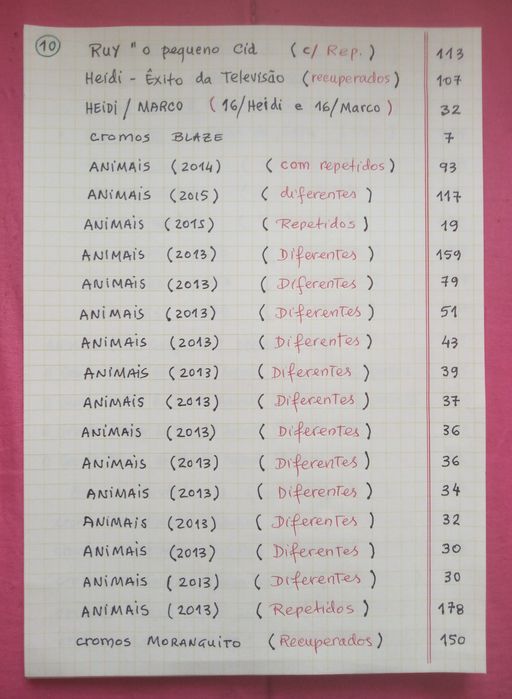 10
RUY " o pequeno Cid (c/ Rep.) 113
Heidi - Êxito da Televisão (recuperados) 107
HEIDI / MARCO (16/Heidi e 16/Marco) 32
cromos BLAZE 7
ANIMAIS (2014) (com repetidos) 93
ANIMAIS (2015) (diferentes) 117
ANIMAIS (2015) (Repetidos) 19
ANIMAIS (2013) (Diferentes) 159
ANIMAIS (2013) (Diferentes) 79
ANIMAIS (2013) (Diferentes) 51
ANIMAIS (2013) (Diferentes) 43
ANIMAIS (2013) (Diferentes) 39
ANIMAIS (2013) (Diferentes) 37
ANIMAIS (2013) (Diferentes) 36
ANIMAIS (2013) (Diferentes) 36
ANIMAIS (2013) (Diferentes) 34
ANIMAIS (2013) (Diferentes) 32
ANIMAIS (2013) (Diferentes) 30
ANIMAIS (2013) (Diferentes) 30
ANIMAIS (2013) (Repetidos) 178
cromos MORANGUITO (Recuperados) 150